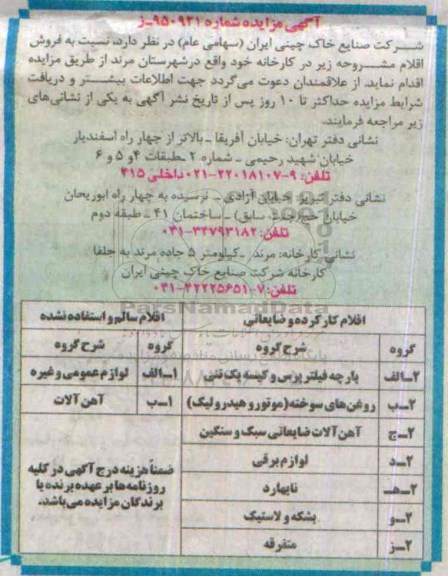 آگهی مزایده شماره ۹۵۰۹۲۱-ز
شرکت صنایع خاک چینی ایران (سهامی عام) در نظر دارد، نسبت به فروش
اقلام مشروحه زیر در کارخانه خود واقع درشهرستان مرند از طریق مزایده
اقدام نماید. از علاقمندان دعوت می‌گردد جهت اطلاعات بیشتر و دریافت
شرایط مزایده حداکثر تا ۱۰ روز پس از تاریخ نشر آگهی به یکی از نشانی‌های
زیر مراجعه فرمایند.
نشانی دفتر تهران: خیابان آفریقا - بالاتر از چهار راه اسفندیار
خیابان شهید رحیمی - شماره ۲ - طبقات ۴ و ۵ و ۶
تلفن: ۹-۲۲۰۱۸۱۰۷-۰۲۱ داخلی ۴۱۵
نشانی دفتر تبریز: خیابان آزادی - نرسیده به چهار راه ابوریحان
خیابان حج (جنت سابق) - ساختمان ۴۱ - طبقه دوم
تلفن: ۳۴۷۹۳۱۸۲-۰۴۱
نشانی کارخانه: مرند - کیلومتر ۵ جاده مرند به جلفا
کارخانه شرکت صنایع خاک چینی ایران
تلفن: ۷-۴۲۲۲۵۶۵۱-۰۴۱
ParsNamadData
اقلام کارکرده و ضایعاتی
اقلام سالم و استفاده نشده
گروه شرح گروه
گروه شرح گروه
۲-الف پارچه فیلتر پرس و کیسه پک فنی
۱-الف لوازم عمومی و غیره
۲-ب روغن‌های سوخته (موتور و هیدرولیک)
۱-ب آهن آلات
۲-ج آهن آلات ضایعاتی سبک و سنگین
۲-د لوازم برقی
۲-هـ نایهارد
۲-و بشکه و لاستیک
۲-ز متفرقه
ضمناً هزینه درج آگهی در کلیه
روزنامه‌ها بر عهده برنده یا
برندگان مزایده می‌باشد.